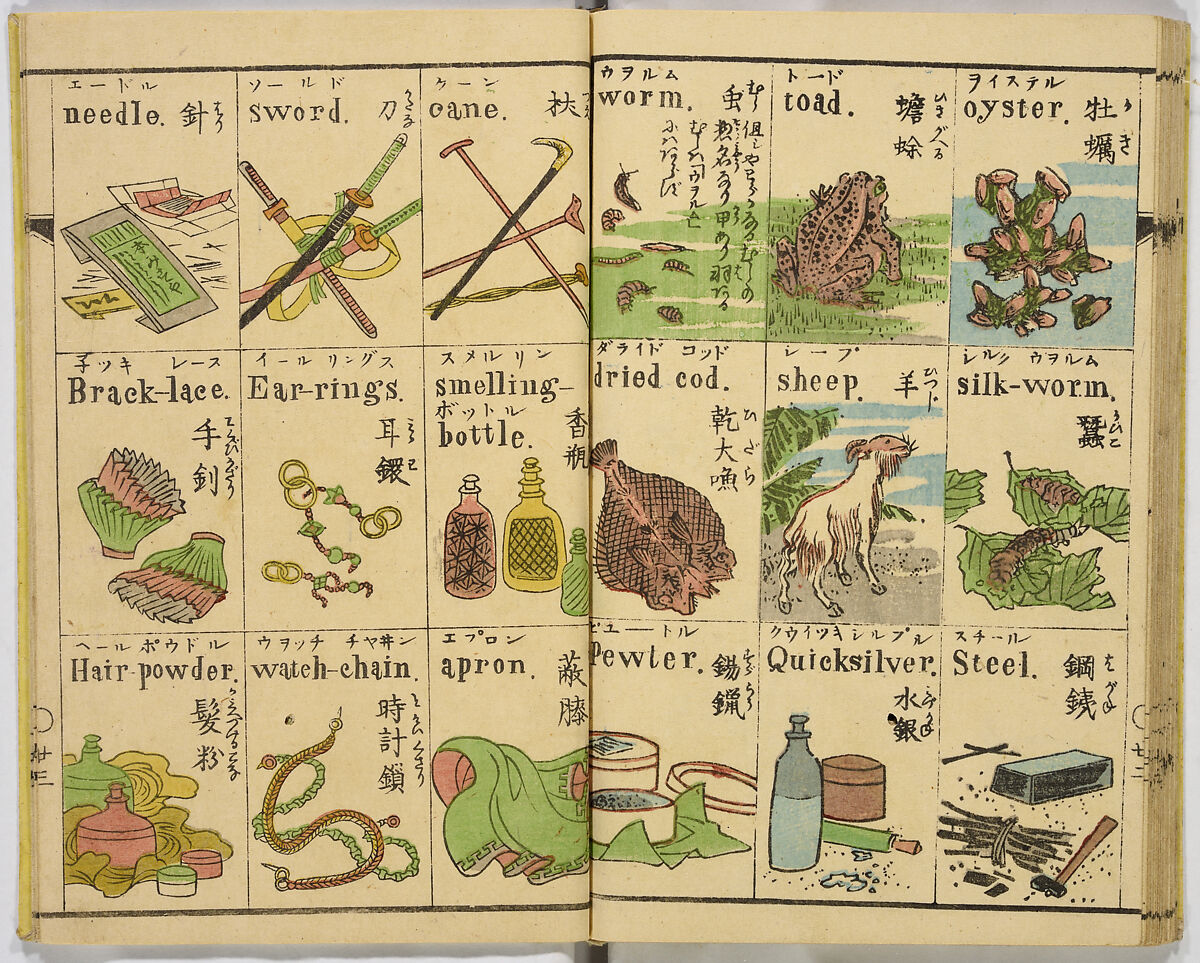 エードル
needle. 針 はり
ソールド
sword. 刀 かたな
ケーン
cane. 杖
本みすや
子ッキ レース
Brack-lace.
手釧
イールリングス
Ear-rings.
耳鐶
スメルリン
smelling-
ボットル
bottle.
香瓶
ヘールポウドル
Hair-powder.
髪粉
ウヲッチ チヤ井ン
watch-chain.
時計鎖
エプロン
apron.
蔽膝
ウヲルム
worm. 虫 むし
トード
toad.
蟾蜍 ひきがへる
ヲイステル
oyster. 牡蠣 かき
ダライド コッド
dried cod.
乾大魚 ひだら
シープ
sheep. 羊 ひつじ
シルク ウヲルム
silk-worm.
蚕 かひこ
ピユートル
Pewter.
錫鑞
クウイツキシルプル
Quicksilver.
水銀
スチール
Steel.
鋼銕 はがね